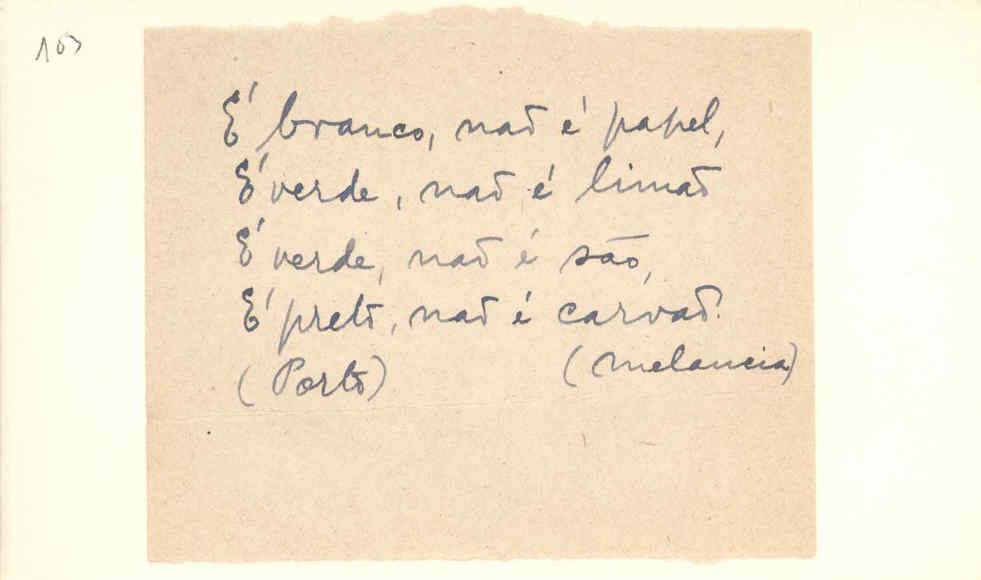 103
É branco, não é papel,
É verde, não é limão
É verde, não é são,
É preto, não é carvão.
(Porto) (melancia)